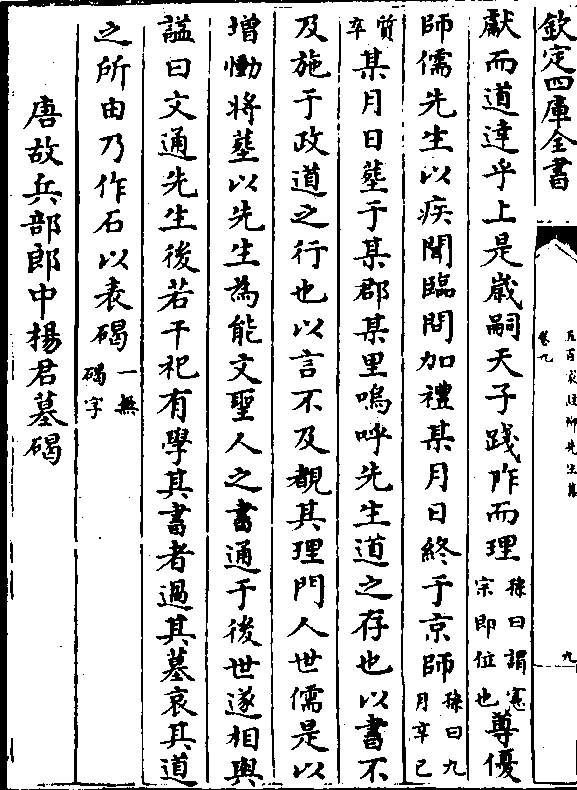 欽定四庫全書
五百家注柳先生集
卷九
九
獻而道達乎上是歲嗣天子踐阼而理孫曰謂憲宗即位也尊優
師儒先生以疾聞臨問加禮某月日終于京師孫曰九月辛巳
質卒某月日塟于某郡某里嗚呼先生道之存也以書不
及施于政道之行也以言不及覩其理門人世儒是以
增慟將塟以先生為能文聖人之書通于後世遂相與
諡曰文通先生後若干祀有學其書者過其墓哀其道
之所由乃作石以表碣一無碣字
唐故兵部郎中楊君墓碣